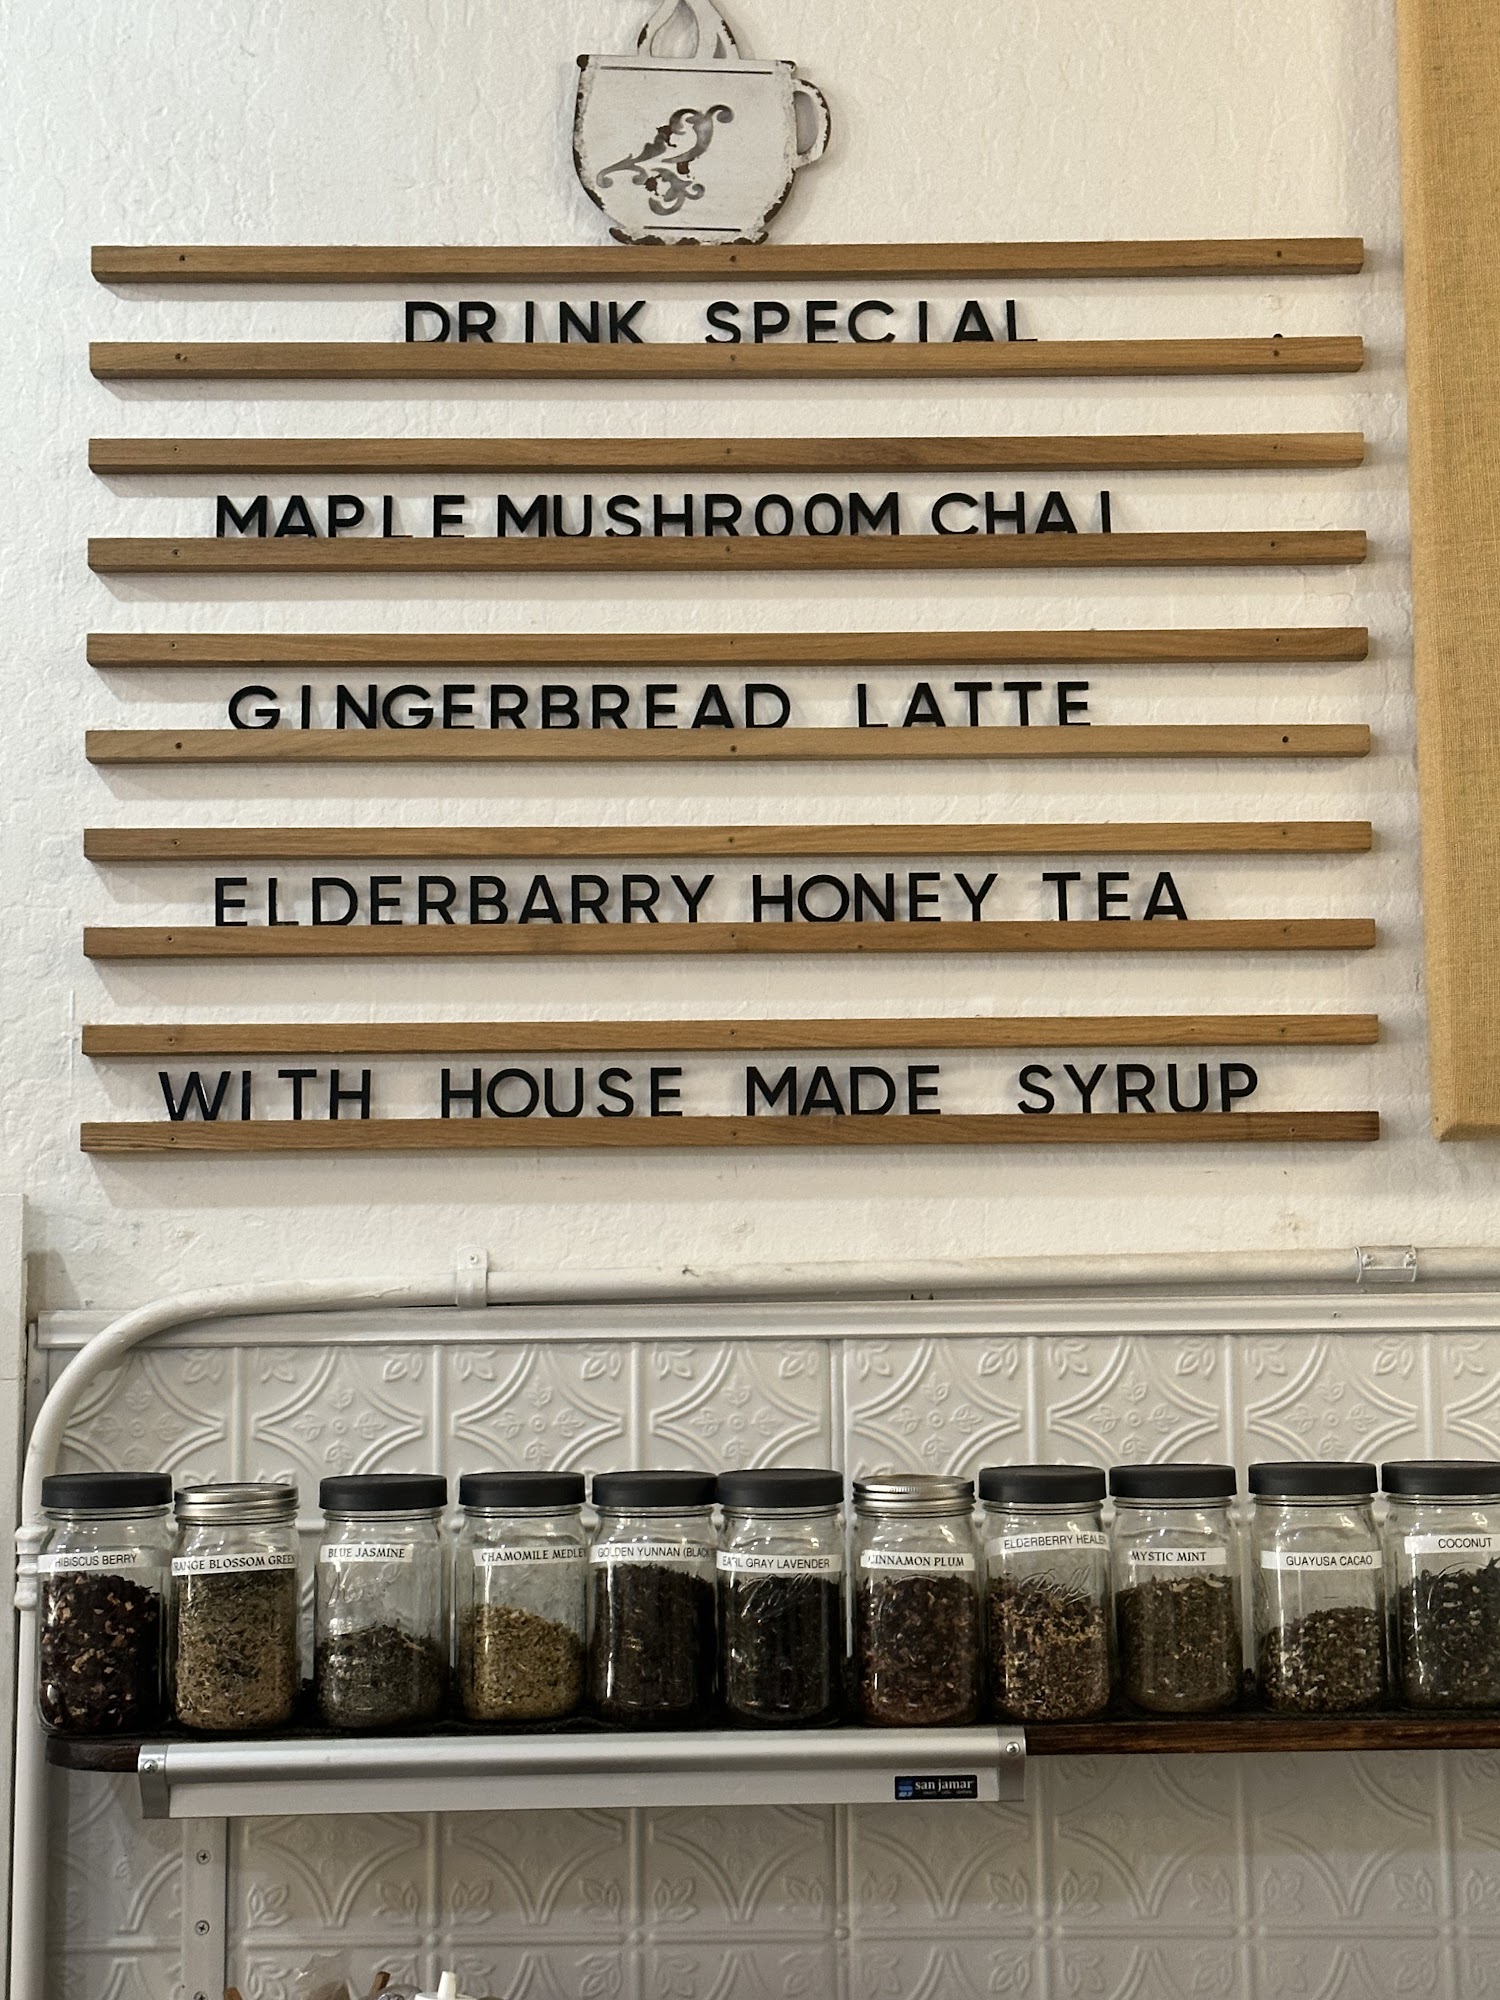 DRINK SPECIAL
MAPLE MUSHROOM CHAI
GINGERBREAD LATTE
ELDERBARRY HONEY TEA
WITH HOUSE MADE SYRUP
HIBISCUS BERRY
BLOSSOM GREEN
BLUE JASMINE
CHAMOMILE MEDLEY
GOLDEN YUNNAN (BLACK
EARL GRAY LAVENDER
CINNAMON PLUM
ELDERBERRY
MYSTIC MINT
GUAYUSA CACAO
COCONUT
san jamar